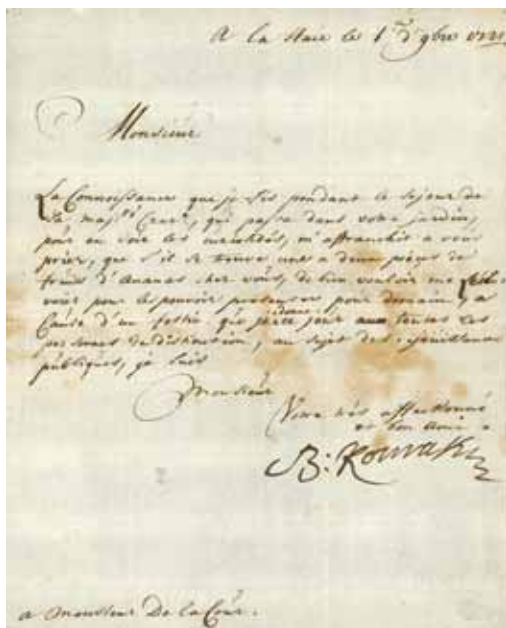 A la Haie le 1.er d'9bre
Monsieur
La Connoissance que je fis pendant le sejour de
Sa maj.té Czar.e, qui passa dans votre jardin,
pour en voir les m'affranchit a vous
prier, que s'il se trouve une a deux pièces de
fruits d'Ananas chez vous, de bien vouloir me
voier pour le pouvoir presenter pour demain, a
Cause d'un festin que je donne à toutes les
personnes de distinction, au sujet des rejouissances
publiques, je suis
Monsieur
Votre très affectionné
et bon ami
B: Kourakin
a Monsieur De la Cour.